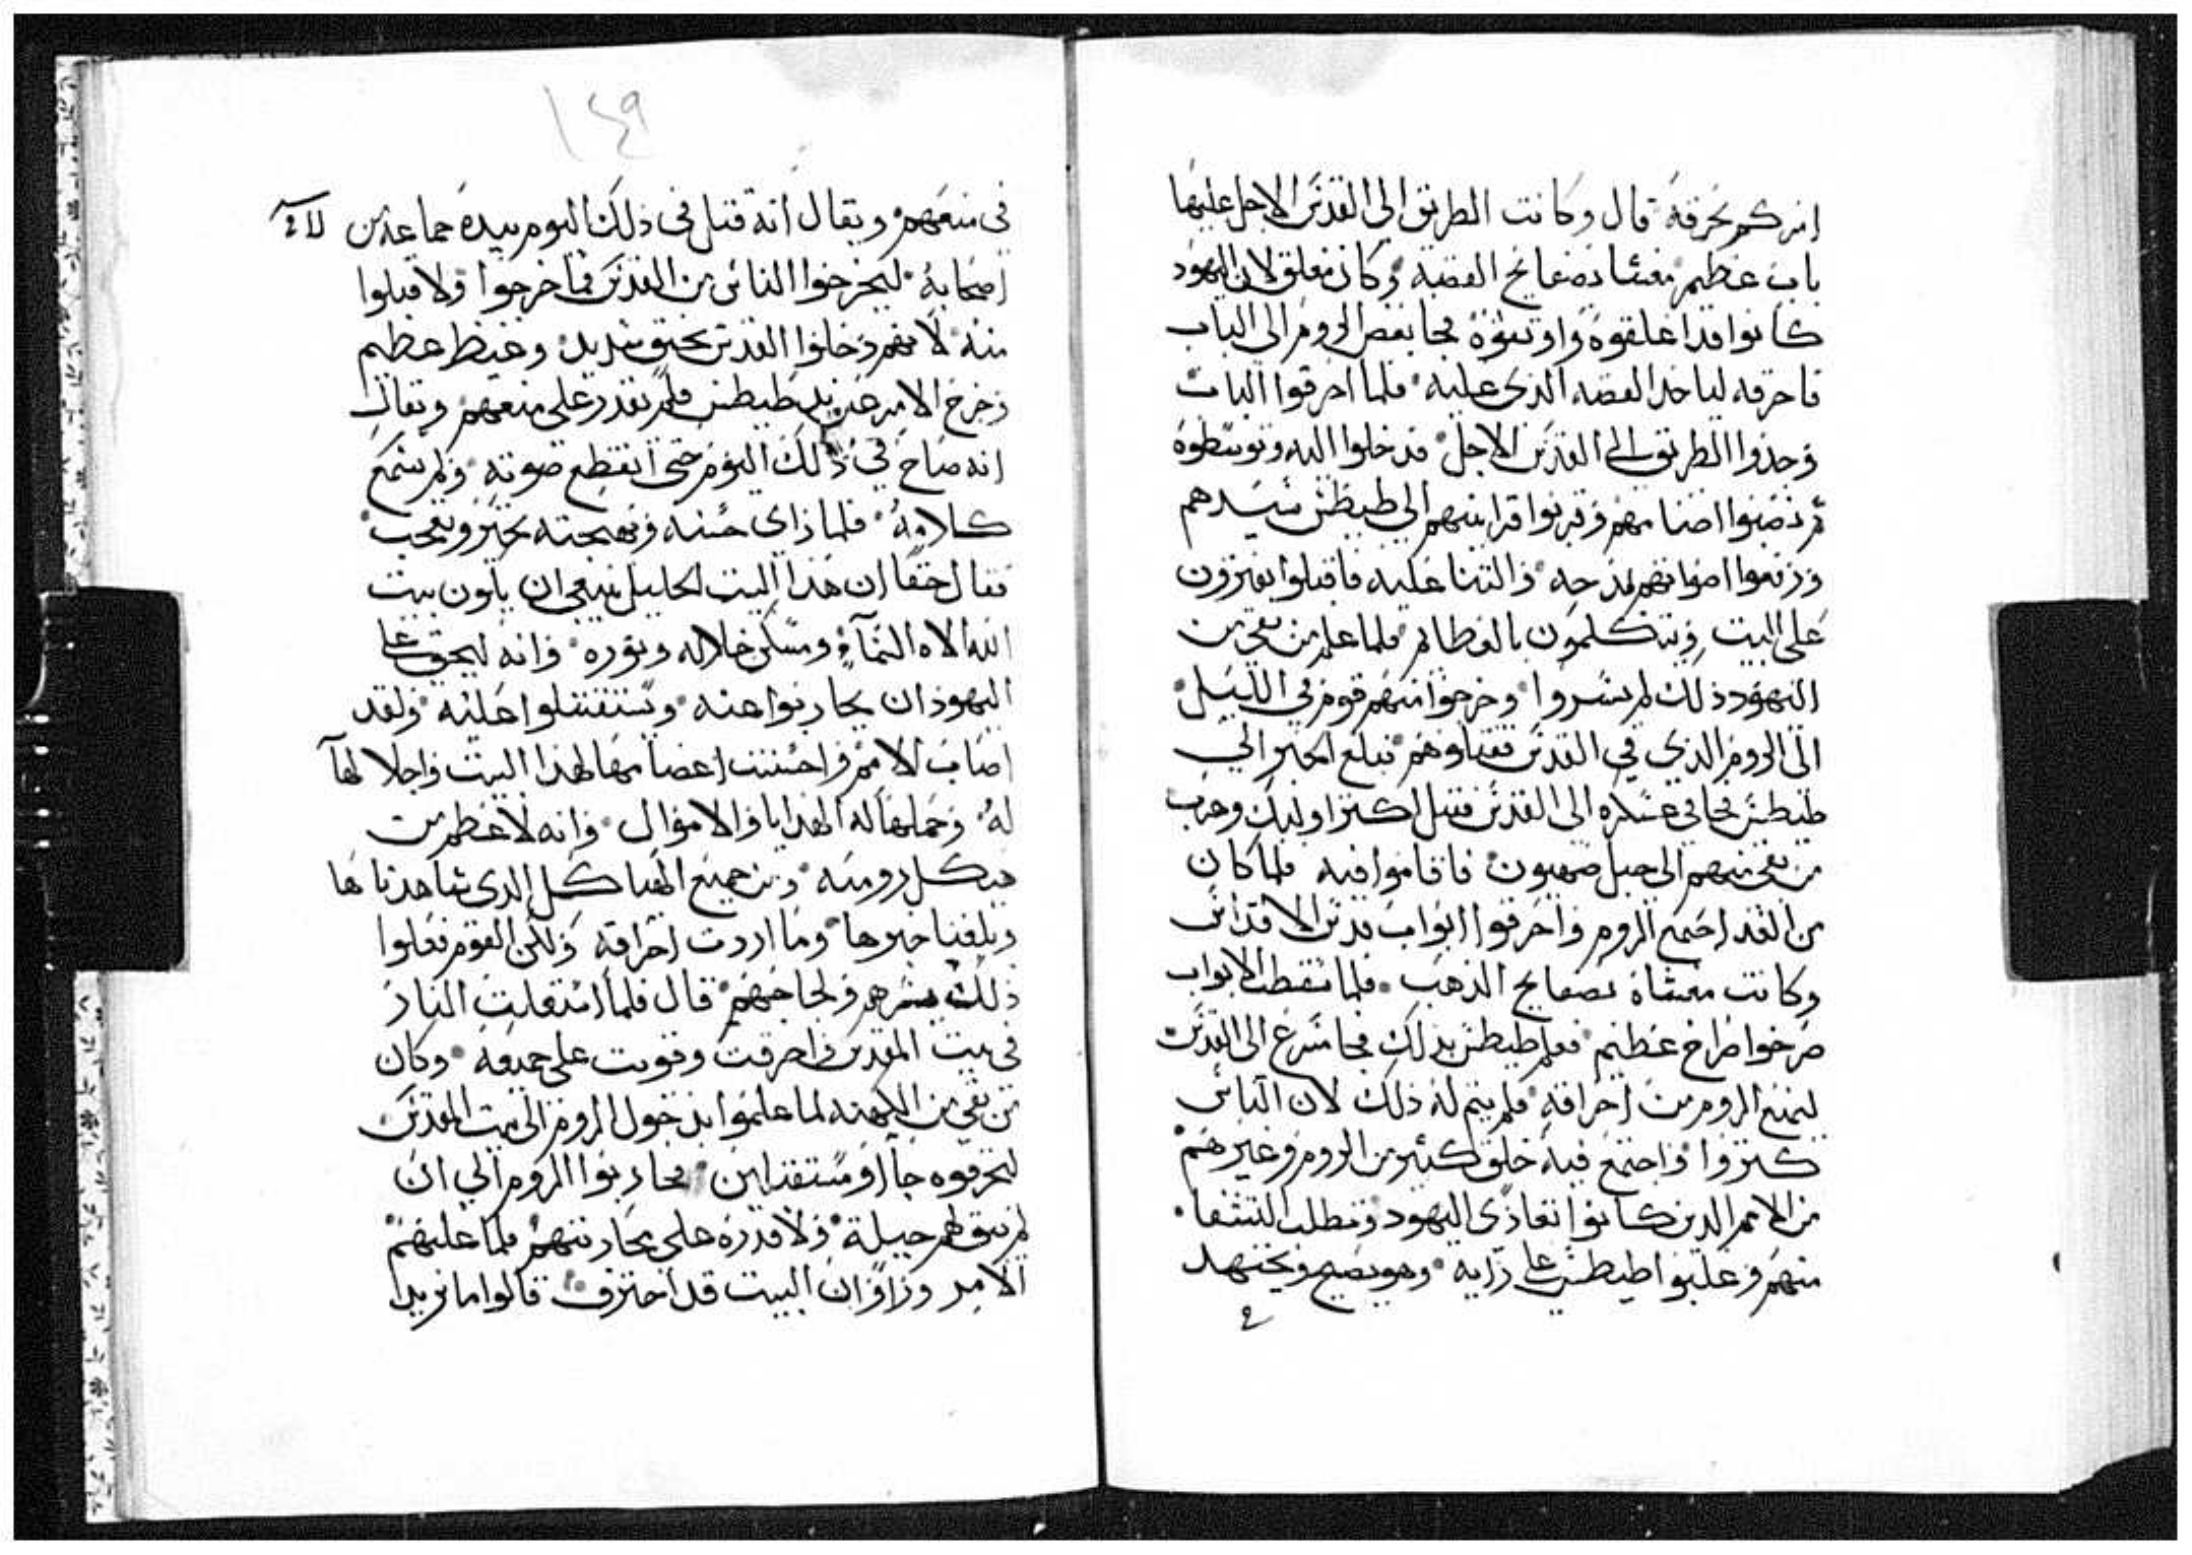 امركم بحرقه قال وكانت الطريق الى القدس الاجل عليها
باب عظيم مغشا بصفايح الفضة وكان مغلق لان اليهود
كانوا قد اغلقوه واوثقوه فجا بعض الروم الى الباب
فاحرقه لياخد الفضه الذي عليه فلما احرقوا الباب
وجدوا الطريق الى القدس الاجل فدخلوا اليه وتوسطوه
ثم نصبوا اصنامهم وقربوا قرابينهم الى طيطش سيدهم
ورفعوا اصواتهم بمدحه والثنا عليه فاقبلوا يفترون
على البيت ويتكلمون بالعظايم فلما علم من بقي من
اليهود ذلك لم يصبروا وخرجوا منهم قوم في الليل
الى الروم الذي في القدس فقتلوهم فبلغ الخبر الى
طيطش فجا في عسكره الى القدس فقتل اكثر اوليك وهرب
من بقي منهم الى جبل صهيون فاقاموا فيه فلما كان
من الغد اجتمع الروم واحرقوا ابواب قدس الاقداس
وكانت مغشاة بصفايح الذهب فلما سقطت الابواب
صرخوا صراخ عظيم فعلم طيطش بذلك فجا مسرع الى القدس
ليمنع الروم من احراقه فلم يتم له ذلك لان الناس
كثروا واجتمع فيه خلق كثير من الروم وغيرهم
من الامم الدين كانوا اعادى اليهود وتطلب التشفا
منهم وغلبوا طيطش على رايه وهو يصيح ويجتهد
١٤٩
في منعهم ويقال انه قتل في ذلك اليوم بيده جماعة من
اصحابه ليخرجوا الناس من القدس فما خرجوا ولا قبلوا
منه لانهم دخلوا القدس بحنق شديد وغيظ عظيم
وخرج الامر عن يد طيطش فلم يقدر على منعهم ويقال
انه صاح في ذلك اليوم حتى انقطع صوته ولم يسمع
كلامه فلما راى حسنه وبهجته تحير وتعجب
فقال حقا ان هذا البيت الجليل ينبغي ان يكون بيت
الله الاه السمآء ومسكن جلاله ونوره وانه ليحق على
اليهود ان يحاربوا عنه ويستقتلوا عليه ولقد
اصاب الامم واحسنت اعضامها لهذا البيت واجلالها
له وحملها له الهدايا والاموال وانه لاعظم من
هيكل روميه ومن جميع الهياكل الذي شاهدناها
وبلغنا خبرها وما اردت احراقه ولكن القوم فعلوا
ذلك بشرهم ولجاجهم قال فلما اشتعلت النار
في بيت المقدس واحرقت وقويت على جميعه وكان
من بقي من الكهنه لما علموا بدخول الروم الى بيت المقدس
ليحرقوه جآاو مستقتلين فحاربوا الروم الى ان
لم يبق لهم حيلة ولا قدرة على محاربتهم فلما غلبهم
الامر وراوا ان البيت قد احترق قالوا ما نريد